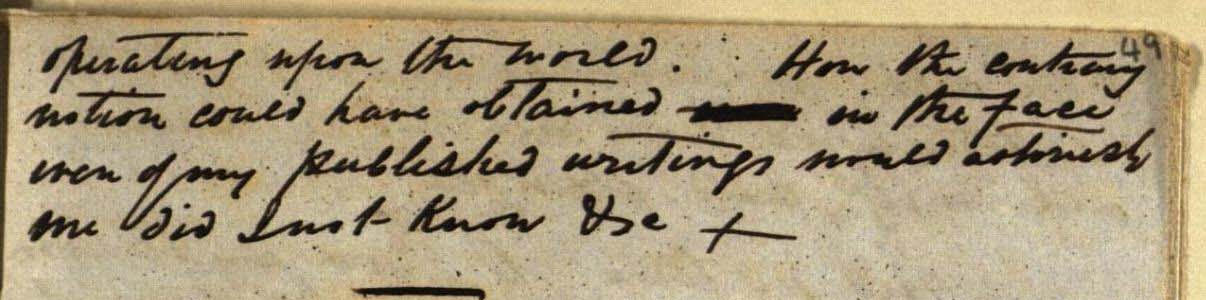 operating upon the world. How the contrary 49
notion could have obtained in the face
even of my published writings would astonish
me did I not know &c +